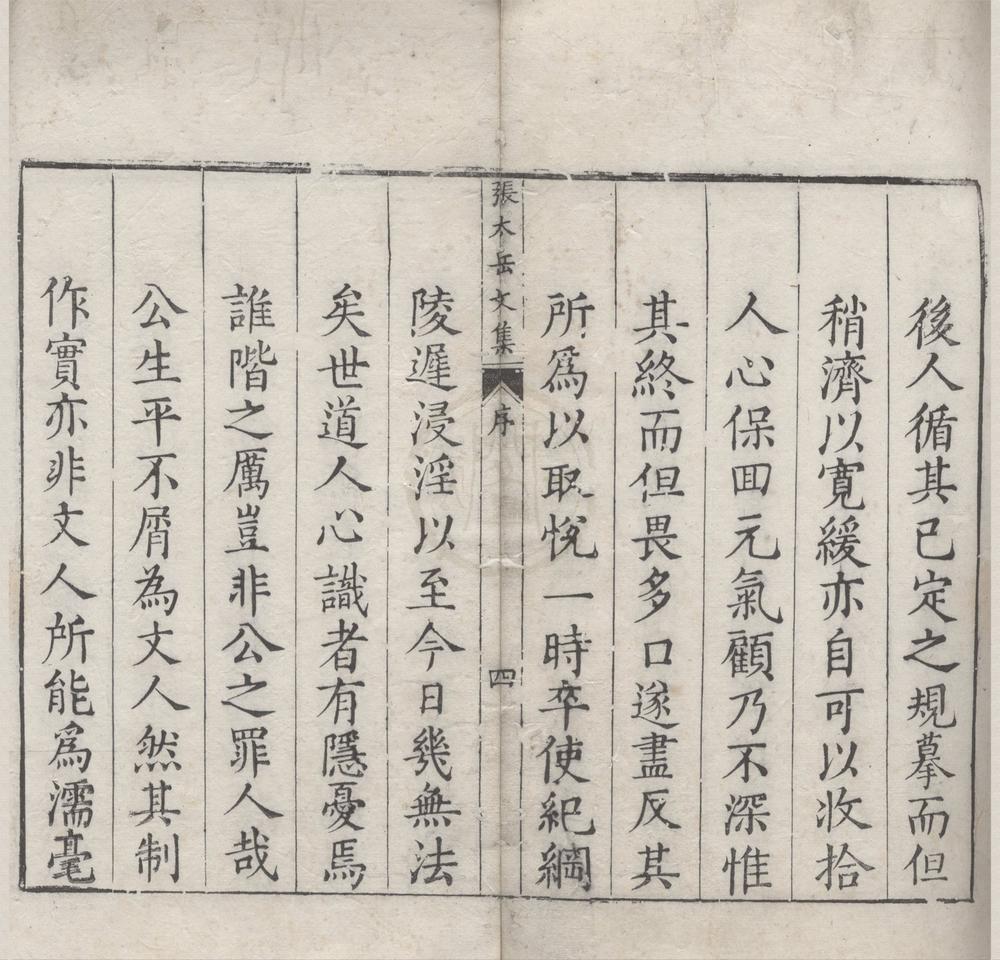 後人循其已定之規摹而但
稍濟以寬緩亦自可以收拾
人心保囬元氣顧乃不深惟
其終而但畏多口遂盡反其
所爲以取悅一時卒使紀綱
張太岳文集 序 四
陵遲浸淫以至今日幾無法
矣世道人心識者有隱憂焉
誰階之厲豈非公之罪人哉
公生平不屑為文人然其制
作實亦非文人所能爲濡毫